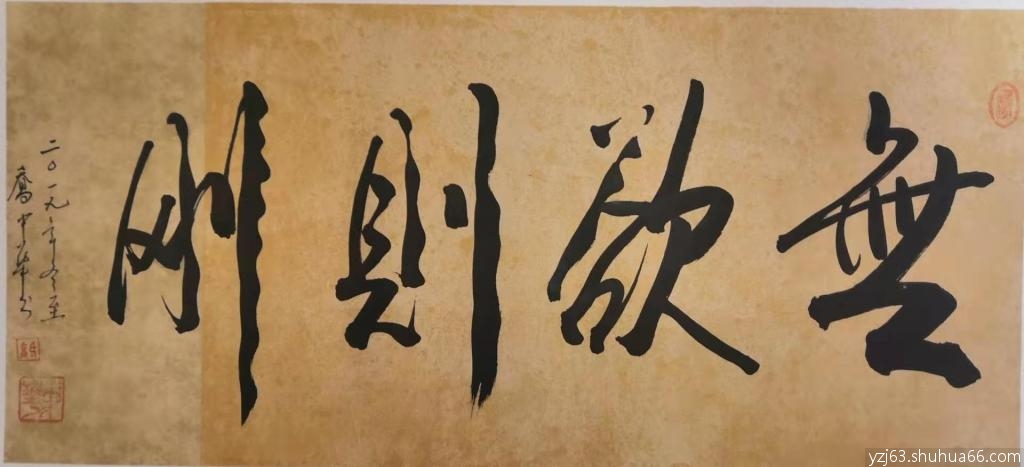 無欲則剛
二〇一九年冬至
喬中華書
yzj63.shuhua66.com